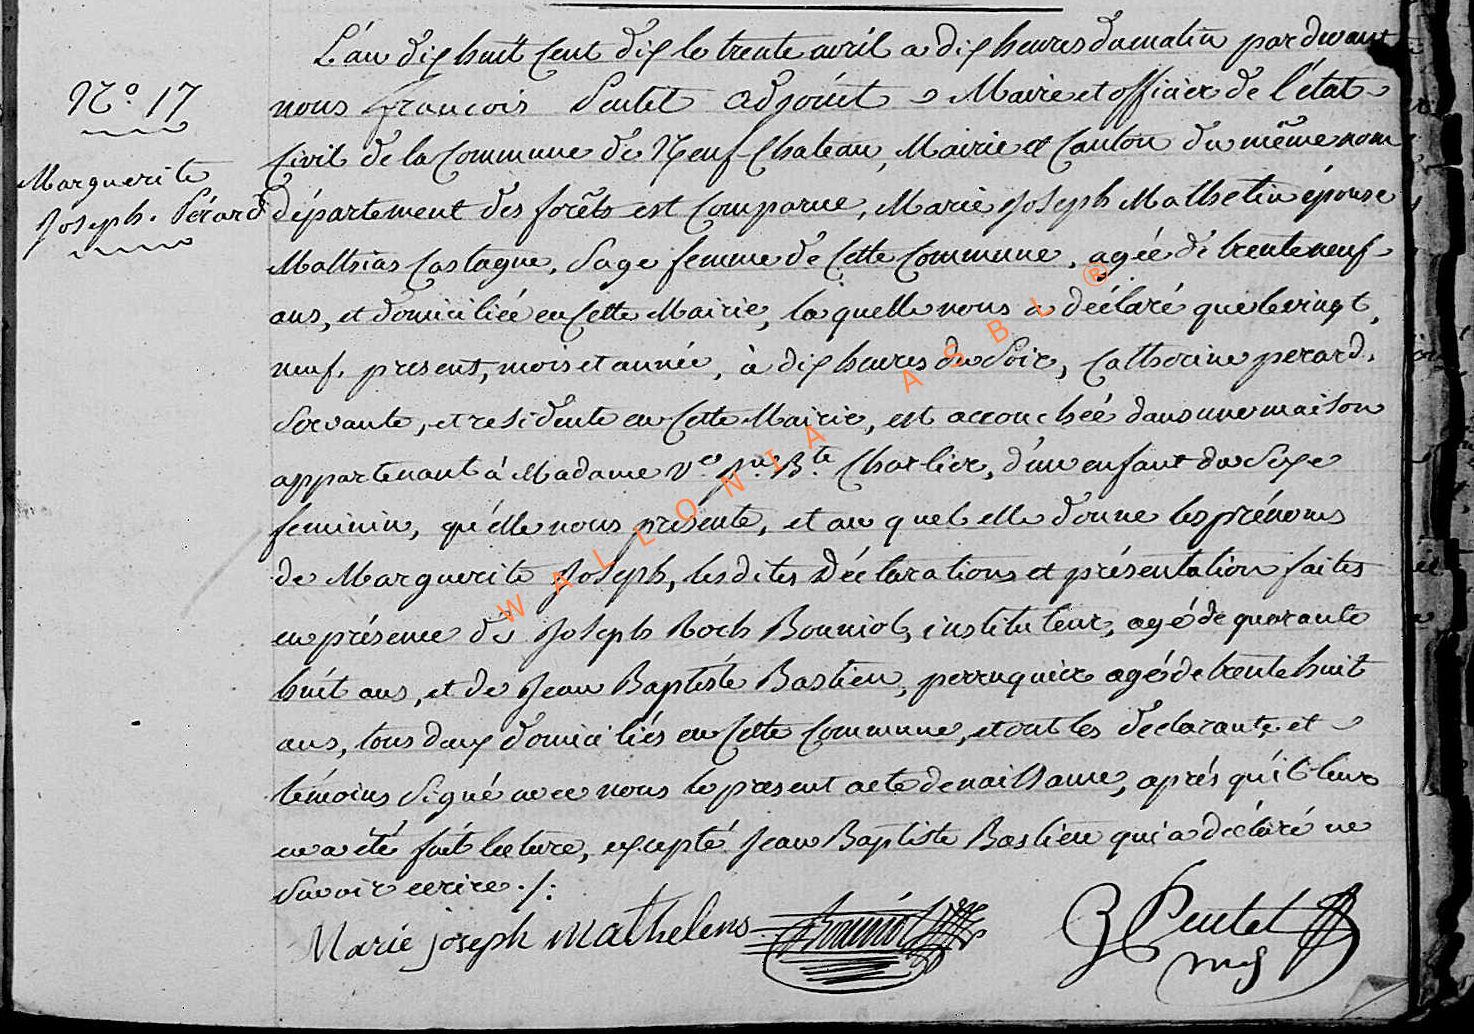 L'an dix huit cent dix le trente avril a dix heures du matin par devant
N.º 17
nous françois Pentet adjoint Maire et officier de l'état
Civil de la Commune de Neuf-Chateau, Mairie et Canton du même nom
Marguerite
Joseph. Pérard
département des forêts est comparue, Marie Joseph Mathelin épouse
Mathias Castagne, Sage femme de Cette Commune, agée de trente neuf
ans, et domiciliée en Cette Mairie, la quelle nous a déclaré que le vingt,
neuf, present, mois et année, à dix heures du Soir, Catherine perard,
Servante, et residente en Cette Mairie, est accouchéé dans une maison
appartenant à Madame Ve Jn Bte Charlier, d'un enfant du Sexe
feminin, qu'élle nous présente, et au quel elle donne les prénoms
de Marguerite Joseph, les dites déclarations et présentation faites
en présence de Joseph Roch Bouniol, instituteur, agé de quarante
huit ans, et de Jean Baptiste Bastien, perruquier agé de trente huit
ans, tous deux domiciliés en Cette Commune, et ont les déclarante et
témoins Signé avec nous le present acte de naissance, aprés qu'il leur
en a été fait lecture, excepté Jean Baptiste Bastien qui a déclaré ne
Savoir ecrire ./.
Marie joseph Mathelens Bouniol Pentet
WALLONIA ASBL ®